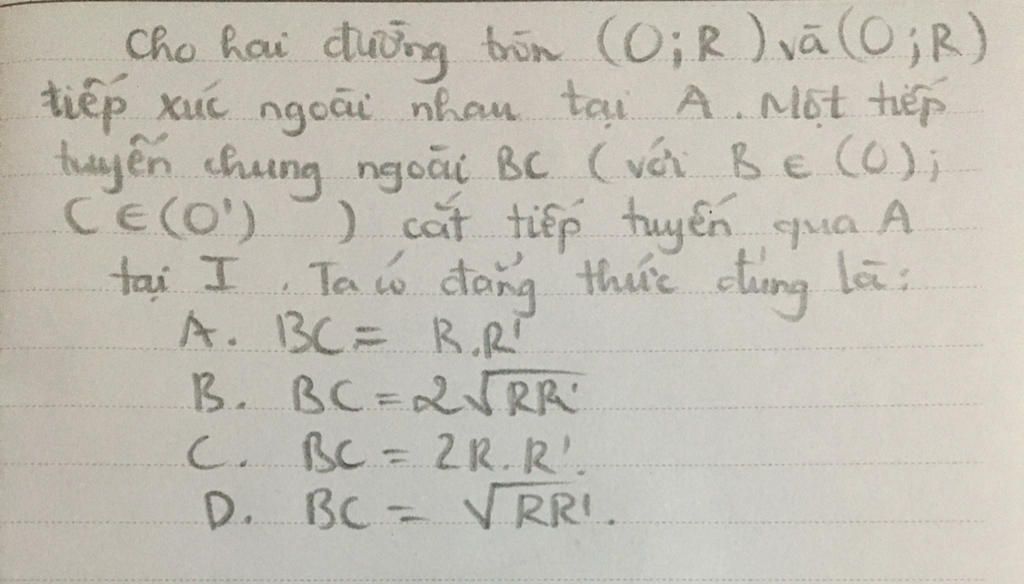 Cho hai đường tròn (O;R) và (O;R)
tiếp xúc ngoài nhau tại A. Một tiếp
tuyến chung ngoài BC (với B ∈ (O);
C ∈ (O') ) cắt tiếp tuyến qua A
tại I. Ta có đẳng thức đúng là:
A. BC = R.R'
B. BC = 2√RR'
C. BC = 2R.R'.
D. BC = √RR'.